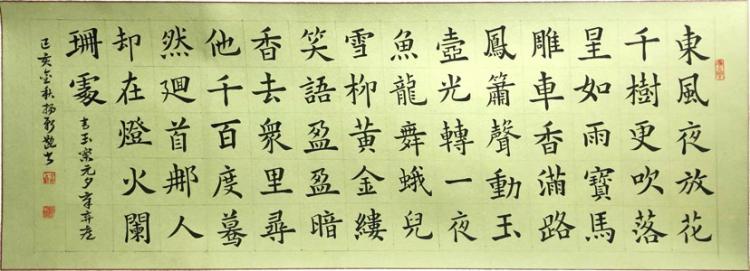 東風夜放花
千樹更吹落
星如雨寶馬
雕車香滿路
鳳簫聲動玉
壺光轉一夜
魚龍舞蛾兒
雪柳黃金縷
笑語盈盈暗
香去衆里尋
他千百度驀
然廻首那人
却在燈火闌
珊處
青玉案元夕辛弃疾
己亥金秋楊